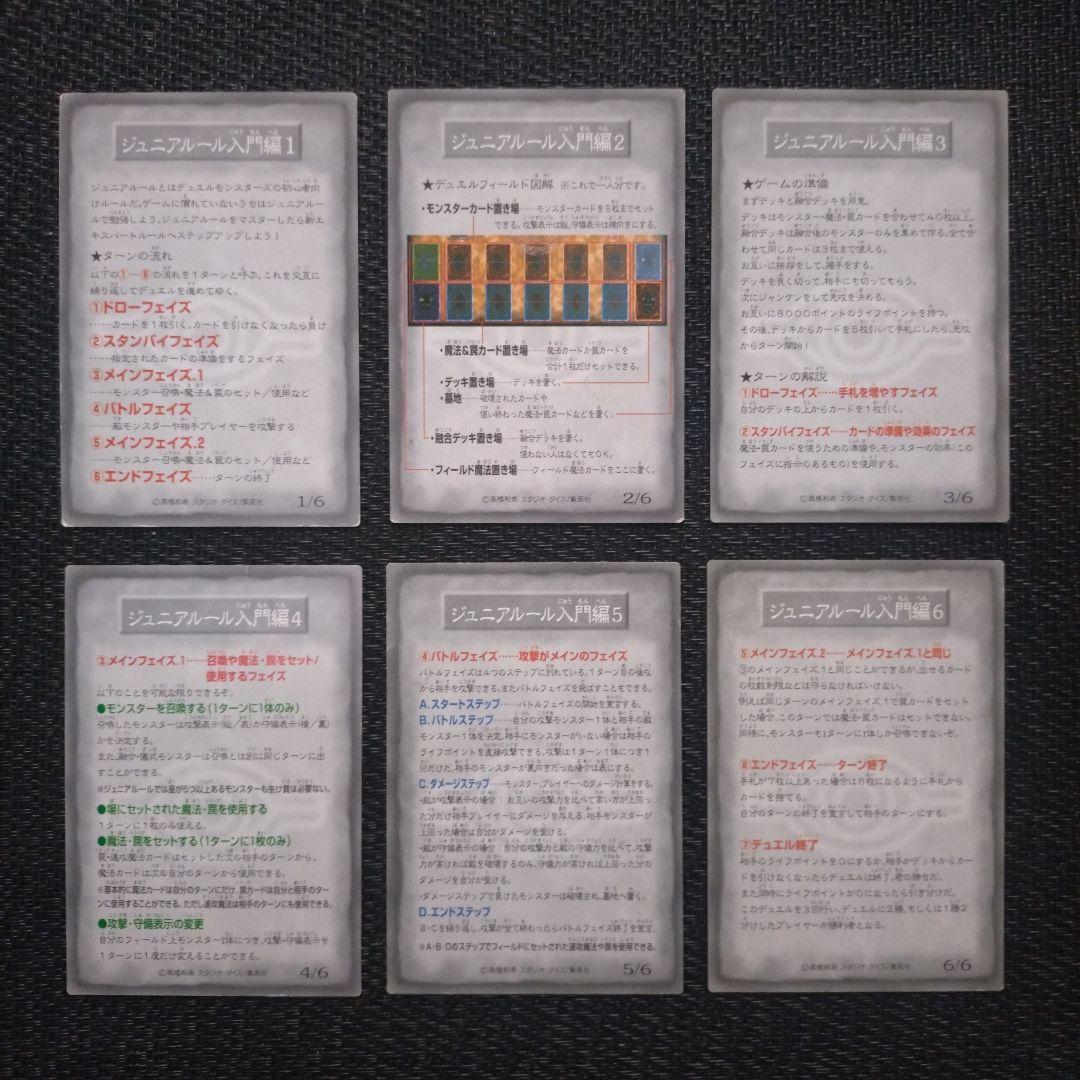 ジュニアルール入門編1
ジュニアルールとはデュエルモンスターズの初心者向
けルールだ。ゲームに慣れていないうちはジュニアルー
ルで勉強しよう。ジュニアルールをマスターしたら新エ
キスパートルールへステップアップしよう！
★ターンの流れ
以下の①～⑥の流れを１ターンと呼ぶ。これを交互に
繰り返してデュエルを進めてゆく。
①ドローフェイズ
……カードを１枚引く。カードを引けなくなったら負け
②スタンバイフェイズ
……指定されたカードの準備をするフェイズ
③メインフェイズ.1
……モンスター召喚・魔法＆罠のセット／使用など
④バトルフェイズ
……敵モンスターや相手プレイヤーを攻撃する
⑤メインフェイズ.2
……モンスター召喚・魔法＆罠のセット／使用など
⑥エンドフェイズ……ターンの終了
©高橋和希 スタジオ・ダイス/集英社
1/6
ジュニアルール入門編2
★デュエルフィールド図解 ※これで一人分です。
・モンスターカード置き場……モンスターカードを５枚までセット
できる。攻撃表示は縦、守備表示は横向きにする。
・魔法&罠カード置き場……魔法カードか罠カードを
合計１枚だけセットできる。
・デッキ置き場……デッキを置く。
・墓地……破壊されたカードや
使い終わった魔法・罠カードなどを置く。
・融合デッキ置き場……融合デッキを置く。
使わない人はなくてもOK。
・フィールド魔法置き場……フィールド魔法カードをここに置く。
©高橋和希 スタジオ・ダイス/集英社
2/6
ジュニアルール入門編3
★ゲームの準備
まずデッキと融合デッキを用意。
デッキはモンスター・魔法・罠カードを合わせて４０枚以上。
融合デッキは融合後のモンスターのみを集めて作る。全て合
わせて同じカードは３枚まで使える。
お互いに挨拶をして、握手をする。
デッキを良く切って、相手にも切ってもらう。
次にジャンケンをして先攻を決める。
お互いに８０００ポイントのライフポイントを持つ。
その後、デッキからカードを５枚引いて手札にしたら、先攻
からターン開始！
★ターンの解説
①ドローフェイズ……手札を増やすフェイズ
自分のデッキの上からカードを１枚引く。
②スタンバイフェイズ……カードの準備や効果のフェイズ
魔法・罠カードを使うための準備や、モンスターの効果（この
フェイズに指示のあるもの）を使用する。
©高橋和希 スタジオ・ダイス/集英社
3/6
ジュニアルール入門編4
③メインフェイズ.1……召喚や魔法・罠をセット/
使用するフェイズ
以下のことを可能な限りできるぞ。
●モンスターを召喚する（1ターンに1体のみ）
召喚したモンスターは攻撃表示（縦）／表か守備表示（横）／裏
かを決定する。
また、融合・儀式モンスターは召喚とは別に同じターンに出
すことができる。
※ジュニアルールでは星が5つ以上あるモンスターも生け贄は必要ない。
●場にセットされた魔法・罠を使用する
１ターンに１枚のみ使える。
●魔法・罠をセットする（1ターンに1枚のみ）
罠・速攻魔法カードはセットした次の相手のターンから、
魔法カードは次の自分のターンから使用できる。
※基本的に魔法カードは自分のターンにだけ、罠カードは自分と相手のター
ンに使用することができる。ただし速攻魔法は相手のターンにも使用できる。
●攻撃・守備表示の変更
自分のフィールド上モンスター1体につき、攻撃・守備表示を
１ターンに１度だけ変えることができる。
©高橋和希 スタジオ・ダイス/集英社
4/6
ジュニアルール入門編5
④バトルフェイズ……攻撃がメインのフェイズ
バトルフェイズは４つのステップに別れている。１ターン目の後攻
から相手を攻撃できる。またバトルフェイズを飛ばすこともできる。
A.スタートステップ……バトルフェイズの開始を宣言する。
B.バトルステップ……自分の攻撃モンスター１体と相手の敵
モンスター１体を決定。相手にモンスターがいない場合は相手の
ライフポイントを直接攻撃できる。攻撃は１ターン１体につき１
回だけだ。相手のモンスターが裏向きだった場合は表にする。
C.ダメージステップ……モンスター、プレイヤーへのダメージ計算をする。
・敵が攻撃表示の場合：お互いの攻撃力を比べて高い方が上回っ
た分だけ相手プレイヤーにダメージを与える。相手モンスターが
上回った場合は自分がダメージを受ける。
・敵が守備表示の場合：自分の攻撃力と敵の守備力を比べて、攻撃
力が高ければ敵を破壊するのみ。守備力が高ければ上回った分の
ダメージを自分が受ける。
・ダメージステップで負けたモンスターは破壊され、墓地へ置く。
D.エンドステップ
B・Cを繰り返し、攻撃が全て終わったらバトルフェイズ終了を宣言。
※A・B・Dのステップでフィールドにセットされた速攻魔法や罠を使用できる。
©高橋和希 スタジオ・ダイス/集英社
5/6
ジュニアルール入門編6
⑤メインフェイズ.2……メインフェイズ.1と同じ
③のメインフェイズ.1と同じことができるが、出せるカード
の枚数制限などは守らなければいけない。
例えば同じターンのメインフェイズ.1で罠カードをセット
した場合、このターンでは魔法・罠カードはセットできない。
同様に、モンスターも１ターンに１体しか召喚できないぞ。
⑥エンドフェイズ……ターン終了
手札が７枚以上あった場合は６枚になるように手札から
カードを捨てる。
自分のターンの終了を宣言して相手のターンにする。
⑦デュエル終了
相手のライフポイントを０にするか、相手がデッキからカー
ドを引けなくなったらデュエルは終了。君の勝ちだ。
また同時にライフポイントが０になったら引き分けだ。
このデュエルを３回行い、デュエルに２勝、もしくは１勝２
分けしたプレイヤーが勝利者となる。
©高橋和希 スタジオ・ダイス/集英社
6/6